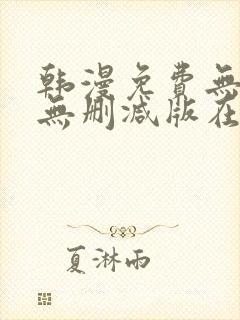 韩漫免費無
無删减版在
夏淋雨